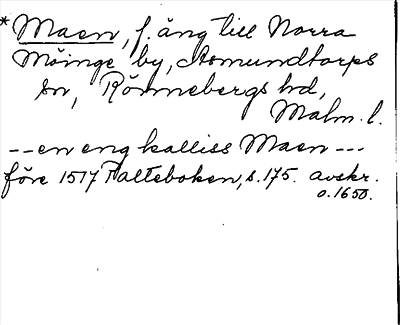 * Maen, f. äng till Norra
Möinge by, Asmundtorps
sn, Rönnebergs hd,
Malm. l.
-- en eng kalliss Maen ---
före 1517 Palteboken, s. 175. avskr.
o. 1650.